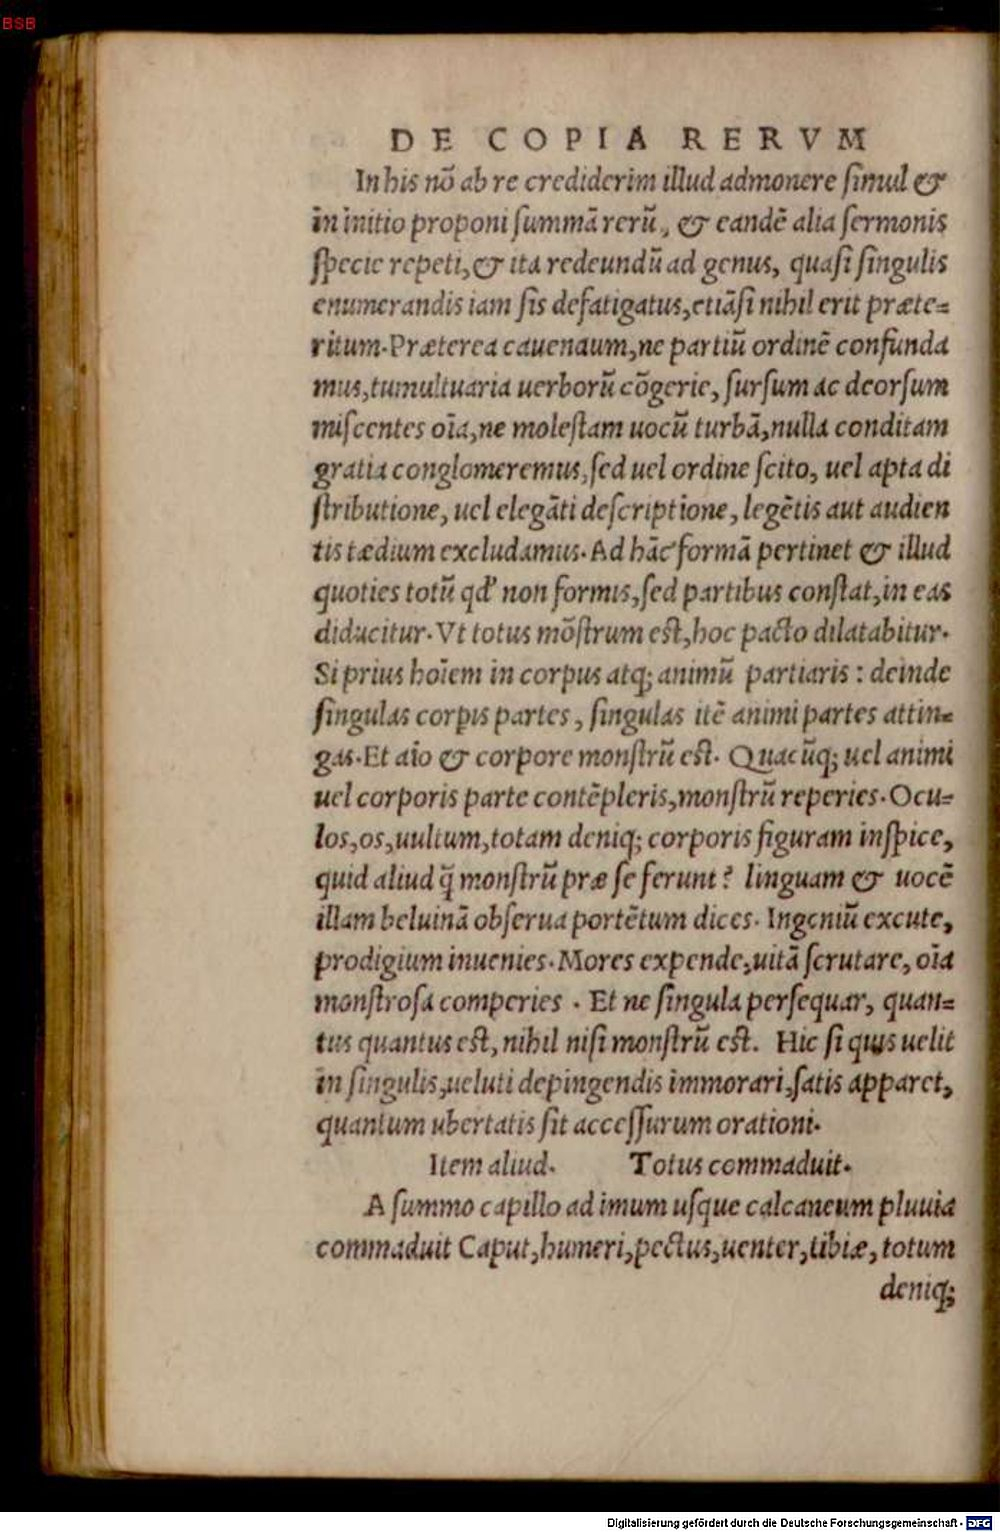 BSB
DE COPIA RERVM
In his nõ ab re crediderim illud admonere ſimul &
in initio proponi ſummã rerũ, & eandẽ alia ſermonis
ſpecie repeti, & ita redeundũ ad genus, quaſi ſingulis
enumerandis iam ſis defatigatus, etiãſi nihil erit præte=
ritum. Præterea cauendum, ne partiũ ordinẽ confunda
mus, tumultuaria uerborũ cõgerie, ſurſum ac deorſum
miſcentes oĩa, ne moleſtam uocũ turbã, nulla conditam
gratia conglomeremus, ſed uel ordine ſcito, uel apta di
ſtributione, uel elegãti deſcriptione, legẽtis aut audien
tis tædium excludamus. Ad hãc formã pertinet & illud
quoties totũ qd' non formis, ſed partibus conſtat, in eas
diducitur. Vt totus mõſtrum eſt, hoc pacto dilatabitur.
Si prius hoĩem in corpus atq; animũ partiaris : deinde
ſingulas corpis partes, ſingulas itẽ animi partes attin=
gas. Et aĩo & corpore monſtrũ eſt. Quacũq; uel animi
uel corporis parte contẽpleris, monſtrũ reperies. Ocu=
los, os, uultum, totam deniq; corporis figuram inſpice,
quid aliud q̃ monſtrũ præ ſe ferunt? linguam & uocẽ
illam beluinã obſerua portẽtum dices. Ingeniũ excute,
prodigium inuenies. Mores expende, uitã ſcrutare, oĩa
monſtroſa comperies . Et ne ſingula perſequar, quan=
tus quantus eſt, nihil niſi monſtrũ eſt. Hic ſi quis uelit
in ſingulis, ueluti depingendis immorari, ſatis apparet,
quantum ubertatis ſit acceſſurum orationi.
Item aliud. Totus commaduit.
A ſummo capillo ad imum uſque calcaneum pluuia
commaduit Caput, humeri, pectus, uenter, tibiæ, totum
deniq;
Digitalisierung gefördert durch die Deutsche Forschungsgemeinschaft - DFG